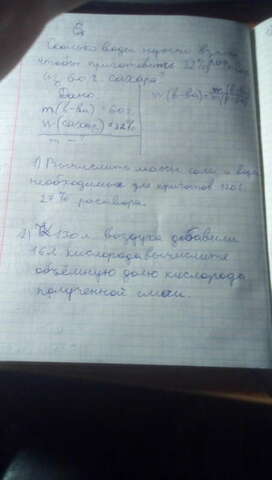 Сколько воды нужно взять
чтобы приготовить 32%
из 60 г. сахара?
Дано
m(в-ва) = 60 г
w(сахар) = 32%
w(в-ва)=
1) Вычислить массы соли и воды
необходимых для 120 г.
27% раствора.
2) 130 л воздуха добавили
16 л кислорода вычислите
объёмную долю кислорода
полученной смеси.